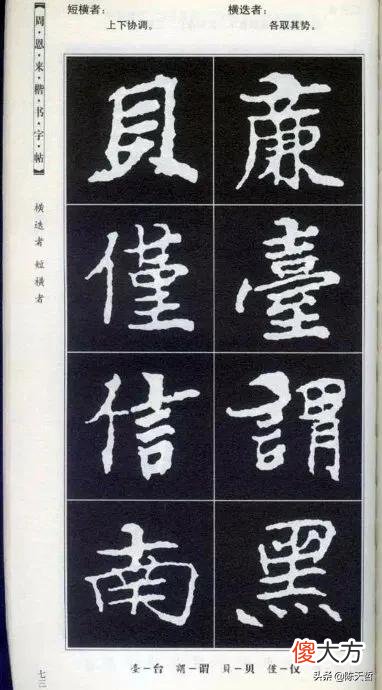 【周·恩·来·楷·书·字·帖】
横迭者：
各取其势。
短横者：
上下协调。
横迭者 短横者
廉臺謂黑
貝僅信南
臺–台 謂–谓 貝–贝 僅–仅
七三
傻大方
头条@陈天哲